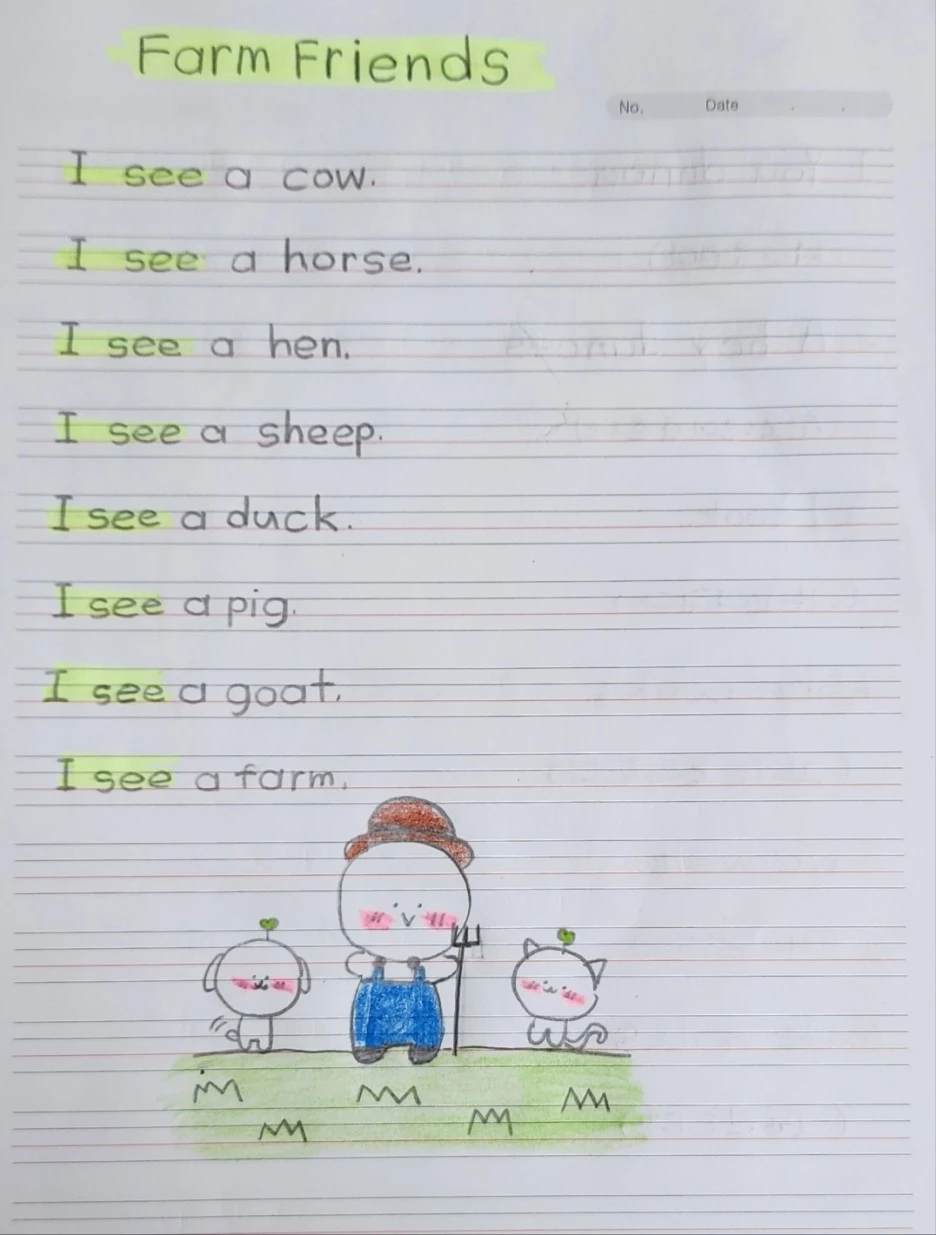 Farm Friends
No. Date . .
I see a cow.
I see a horse.
I see a hen.
I see a sheep.
I see a duck.
I see a pig.
I see a goat.
I see a farm.